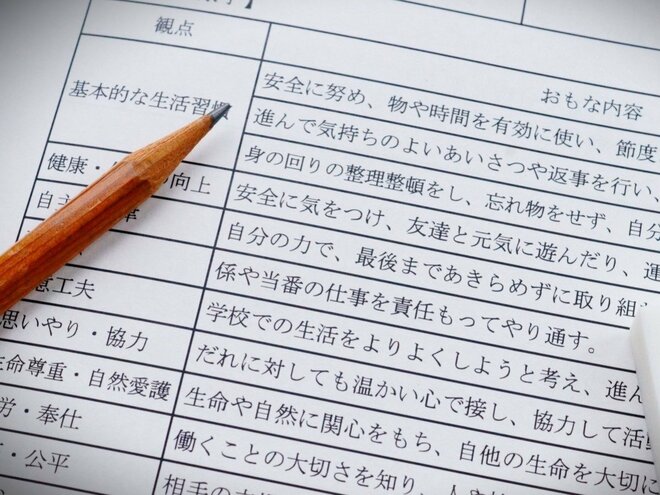 観点
おもな内容
基本的な生活習慣
安全に努め、物や時間を有効に使い、節度
進んで気持ちのよいあいさつや返事を行い、
身の回りの整理整頓をし、忘れ物をせず、自分
健康・ の向上
安全に気をつけ、友達と元気に遊んだり、運
自主
自分の力で、最後まであきらめずに取り組
係や当番の仕事を責任もってやり通す。
意工夫
学校での生活をよりよくしようと考え、進ん
思いやり・協力
だれに対しても温かい心で接し、協力して活動
生命尊重・自然愛護
生命や自然に関心をもち、自他の生命を大切に
労・奉仕
働くことの大切さを知り、
・公平
相手の